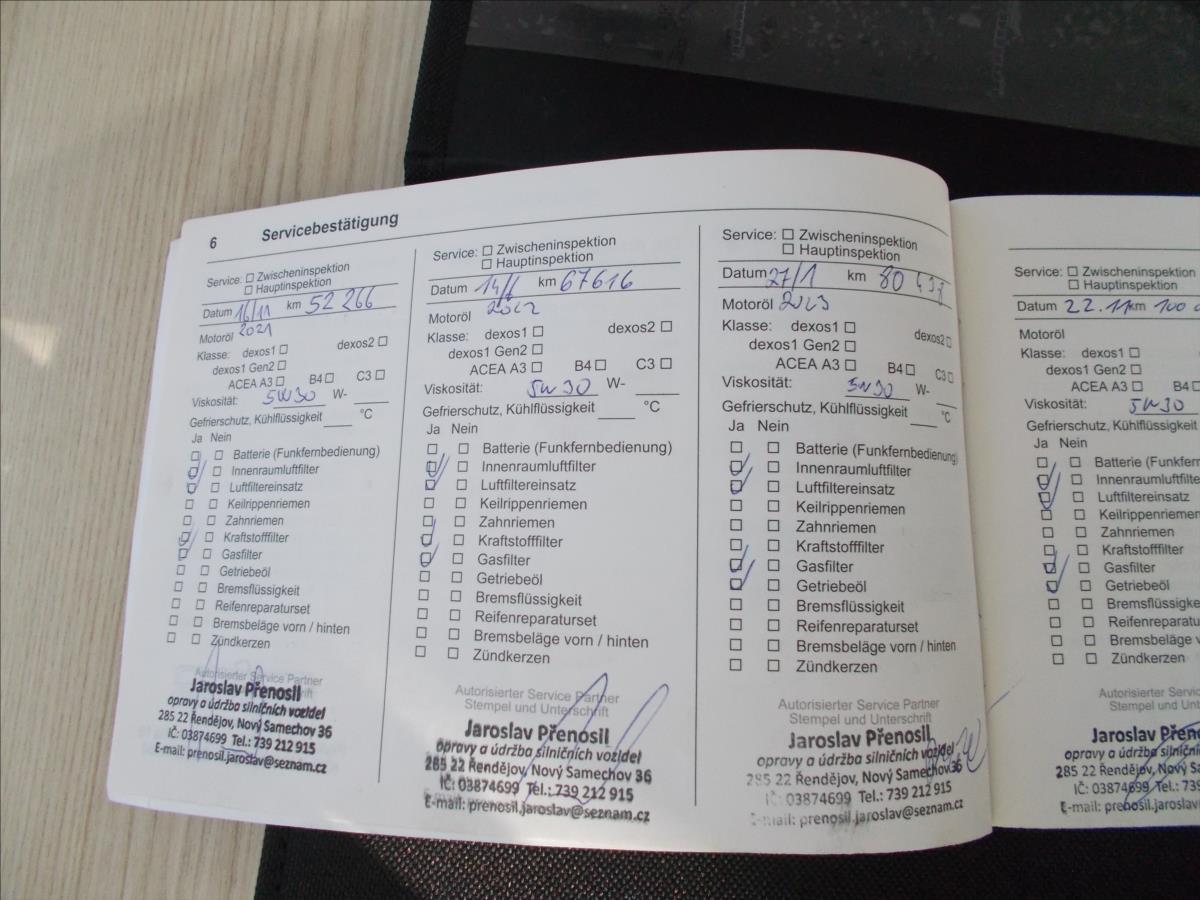 6 Servicebestätigung
Service: ☐ Zwischeninspektion
☐ Hauptinspektion
Datum 16/11 km 52 266
Motoröl 2021
Klasse: dexos1 ☐ dexos2 ☐
dexos1 Gen2 ☐
ACEA A3 ☐ B4 ☐ C3 ☐
Viskosität: 5W30 W-
Gefrierschutz, Kühlflüssigkeit °C
Ja Nein
Batterie (Funkfernbedienung)
Innenraumluftfilter
Luftfiltereinsatz
Keilrippenriemen
Zahnriemen
Kraftstofffilter
Gasfilter
Getriebeöl
Bremsflüssigkeit
Reifenreparaturset
Bremsbeläge vorn / hinten
Zündkerzen
Autorisierter Service Partner
Jaroslav Přenosil
opravy a údržba silničních vozidel
285 22 Řendějov, Nový Samechov 36
IČ: 03874699 Tel.: 739 212 915
E-mail: prenosil.jaroslav@seznam.cz
Service: ☐ Zwischeninspektion
☐ Hauptinspektion
Datum 14/6 km 67616
Motoröl 2022
Klasse: dexos1 ☐ dexos2 ☐
dexos1 Gen2 ☐
ACEA A3 ☐ B4 ☐ C3 ☐
Viskosität: 5W30 W-
Gefrierschutz, Kühlflüssigkeit °C
Ja Nein
Batterie (Funkfernbedienung)
Innenraumluftfilter
Luftfiltereinsatz
Keilrippenriemen
Zahnriemen
Kraftstofffilter
Gasfilter
Getriebeöl
Bremsflüssigkeit
Reifenreparaturset
Bremsbeläge vorn / hinten
Zündkerzen
Autorisierter Service Partner
Stempel und Unterschrift
Jaroslav Přenosil
opravy a údržba silničních vozidel
285 22 Řendějov, Nový Samechov 36
IČ: 03874699 Tel.: 739 212 915
E-mail: prenosil.jaroslav@seznam.cz
Service: ☐ Zwischeninspektion
☐ Hauptinspektion
Datum 27/1 km 80 438
Motoröl 2023
Klasse: dexos1 ☐ dexos2 ☐
dexos1 Gen2 ☐
ACEA A3 ☐ B4 ☐ C3 ☐
Viskosität: 5W30 W-
Gefrierschutz, Kühlflüssigkeit °C
Ja Nein
Batterie (Funkfernbedienung)
Innenraumluftfilter
Luftfiltereinsatz
Keilrippenriemen
Zahnriemen
Kraftstofffilter
Gasfilter
Getriebeöl
Bremsflüssigkeit
Reifenreparaturset
Bremsbeläge vorn / hinten
Zündkerzen
Autorisierter Service Partner
Stempel und Unterschrift
Jaroslav Přenosil
opravy a údržba silničních vozidel
285 22 Řendějov, Nový Samechov 36
IČ: 03874699 Tel.: 739 212 915
E-mail: prenosil.jaroslav@seznam.cz
Service: ☐ Zwischeninspektion
☐ Hauptinspektion
Datum 22.11 km 100
Motoröl
Klasse: dexos1 ☐
dexos1 Gen2 ☐
ACEA A3 ☐ B4
Viskosität: 5W30
Gefrierschutz, Kühlflüssigkeit
Ja Nein
Batterie (Funkfern
Innenraumluftfilte
Luftfiltereinsatz
Keilrippenriemen
Zahnriemen
Kraftstofffilter
Gasfilter
Getriebeöl
Bremsflüssigke
Reifenreparatur
Bremsbeläge vo
Zündkerzen
Autorisierter Service
Stempel und Unter
Jaroslav Přeno
opravy a údržba silničn
285 22 Řendějov, Nový Sam
IČ: 03874699 Tel.: 739
E-mail: prenosil.jaroslav@se